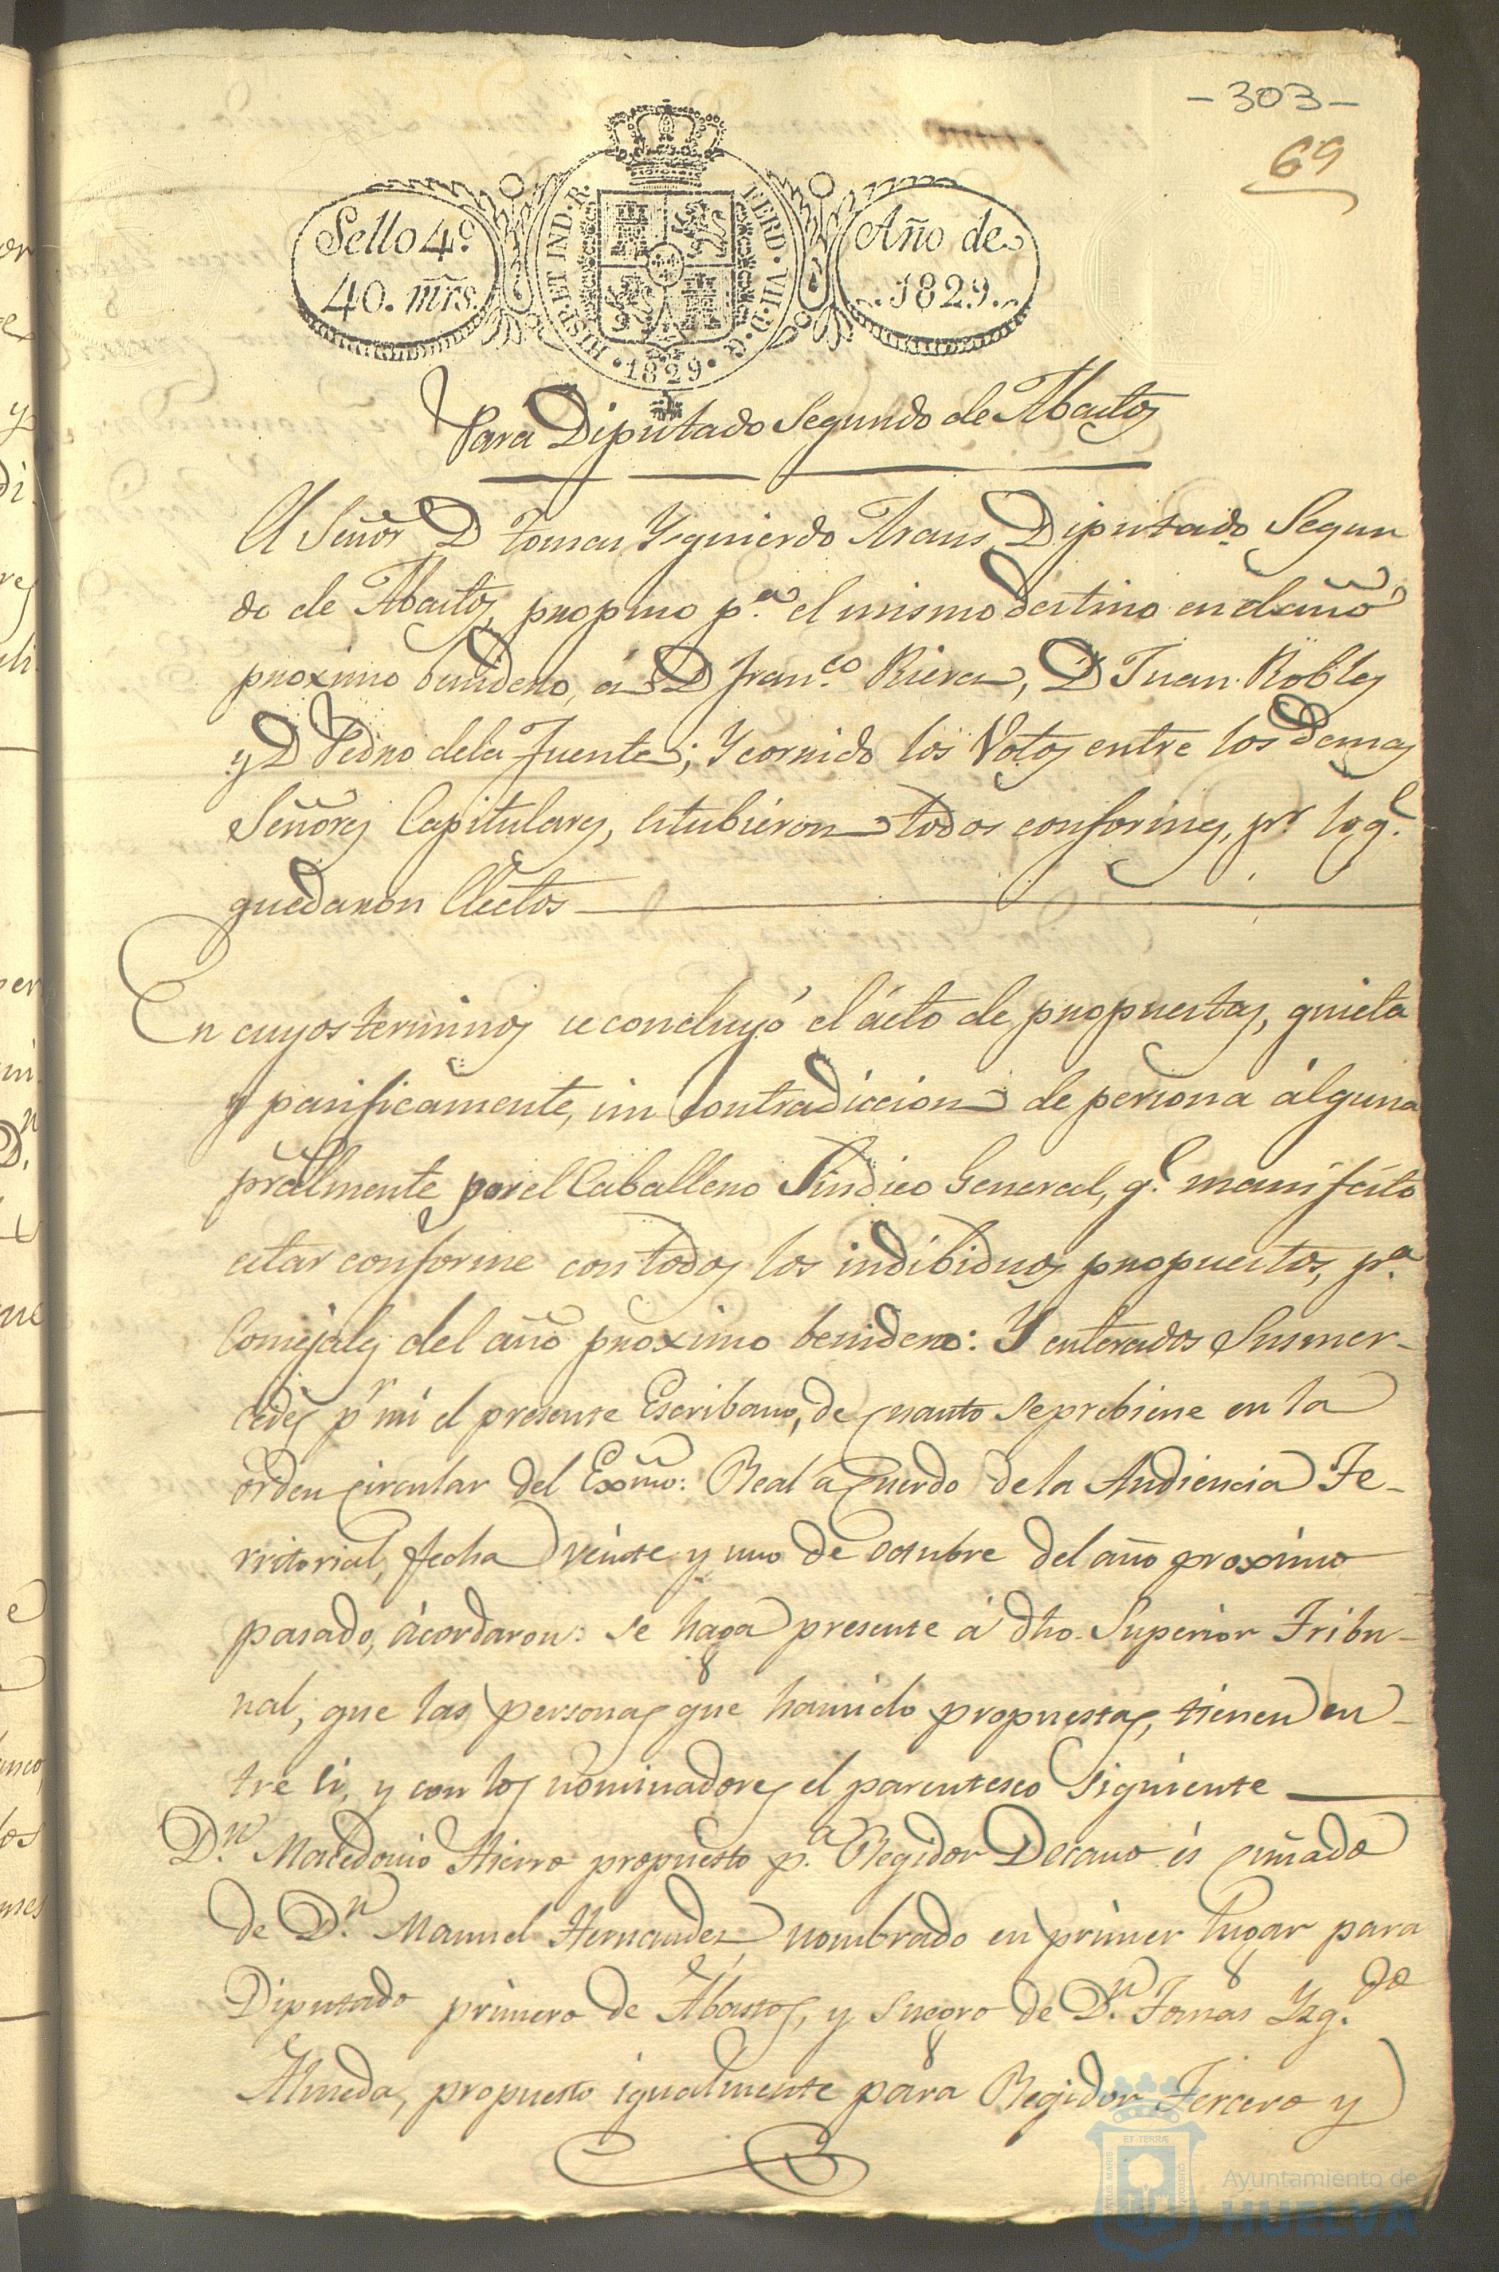 - 303 -
69
Sello 4º
40. mrs.
HISP. ET IND. R.
FERD. VII. D. G.
1829
Año de
1829.
Para Diputado Segundo de Abastos
El Señor D Tomas Ysquierdo Diputado Segun
do de Abastos, propuso p.a el mismo destino en el año
proximo benidero, á D Fran.co Riera, D Juan Robles
y D Pedro de la Fuente; Y corrido los Votos entre los demas
Señores Capitulares, estubieron todos conformes, pr. lo q.e
quedaron Electos
En cuyos terminos se concluyó el ácto de propuestas, quieta
y pasificamente, sin contradiccion de persona álguna
prâlmente por el Caballero Sindico General, q.e manifestó
estar conforme con todos los indibiduos propuestos, pr.a
Consejales del año proximo benidero: Y enterados Sus mer-
cedes pr mi el presente Escribano, de cuanto se prebiene en la
órden circular del Exmo: Real acuerdo de la Audiencia Te-
rritorial, fecha veinte y uno de octubre del año proximo
pasado, ácordaron: se haga presente á dho. Superior Tribu-
nal, que las personas que han sido propuestas, tienen en-
tre si, y con los nominadores el parentesco siguiente
D.n Macedonio Hierro propuesto p.a Regidor Decano és cuñado
de D.n Manuel Hernandez, nombrado en primer lugar para
Diputado primero de Abastos, y suegro de D.n Tomas Yzq.do
Almeda, propuesto igualmente para Regidor Tercero y
Ayuntamiento de
HUELVA